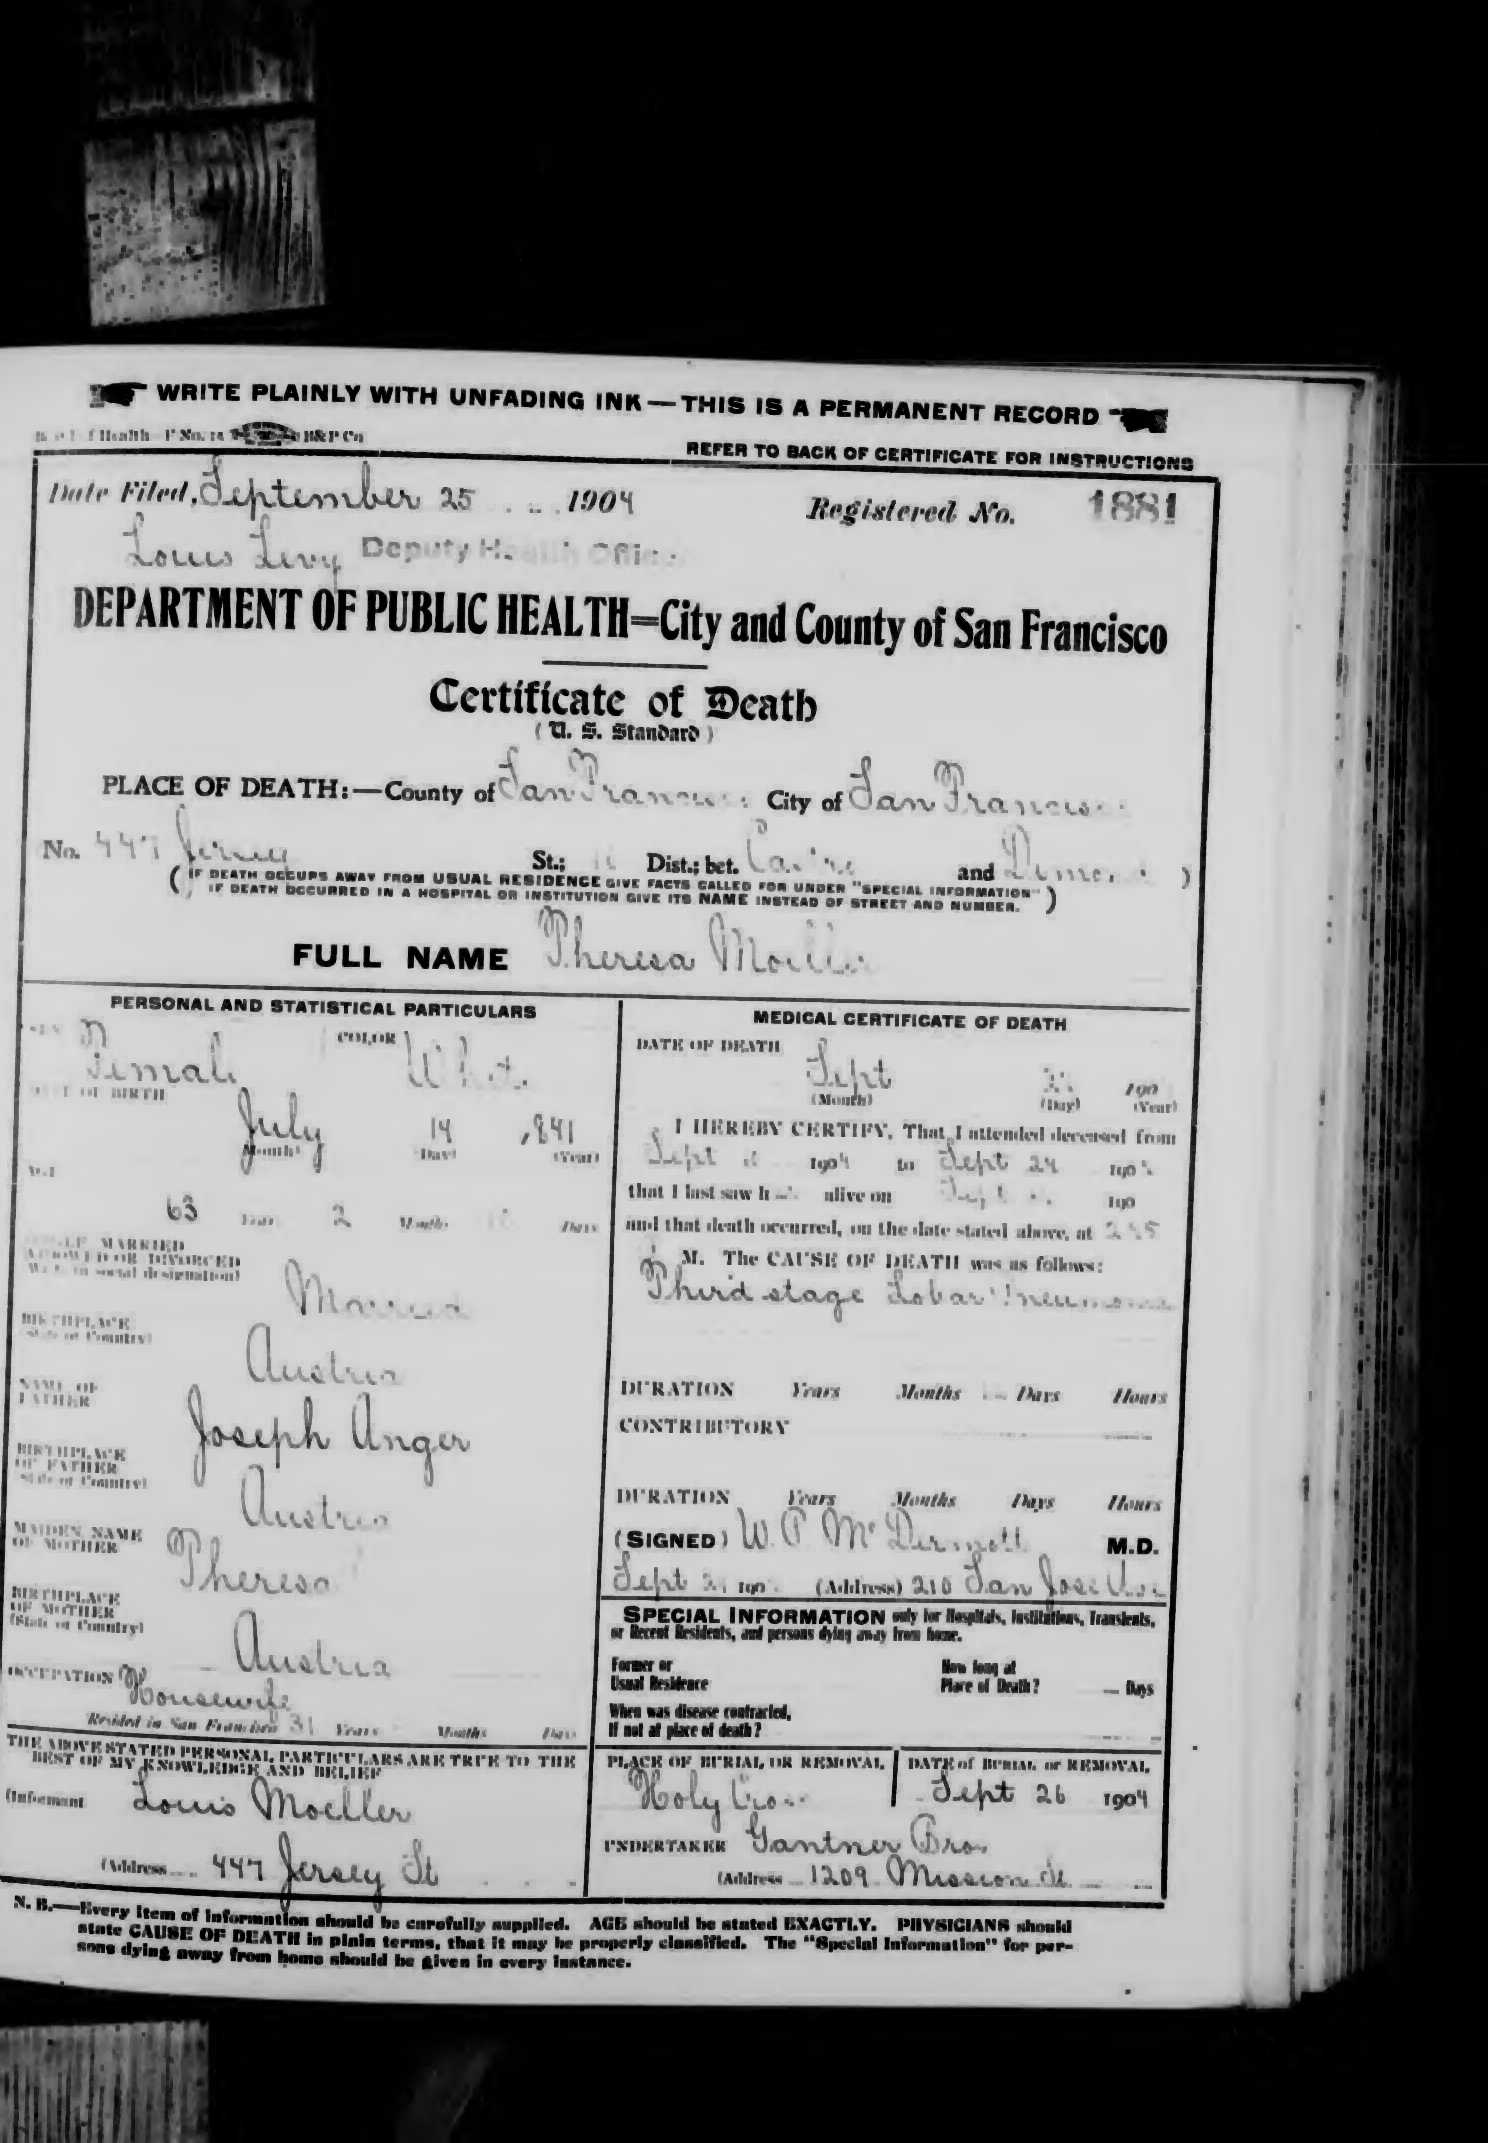 WRITE PLAINLY WITH UNFADING INK—THIS IS A PERMANENT RECORD
B&P Co
REFER TO BACK OF CERTIFICATE FOR INSTRUCTIONS
Date Filed, September 25 1904 Registered No. 1881
Louis Levy Deputy Health Officer
DEPARTMENT OF PUBLIC HEALTH=City and County of San Francisco
Certificate of Death
(U. S. Standard)
PLACE OF DEATH:—County of San Francisco City of San Francisco
No. 447 Jersey St.; Dist.; bet. Castro and
(IF DEATH OCCURS AWAY FROM USUAL RESIDENCE GIVE FACTS CALLED FOR UNDER "SPECIAL INFORMATION"
IF DEATH OCCURRED IN A HOSPITAL OR INSTITUTION GIVE ITS NAME INSTEAD OF STREET AND NUMBER.)
FULL NAME Theresa Moeller
PERSONAL AND STATISTICAL PARTICULARS
SEX Female COLOR White
DATE OF BIRTH
July 14 1841
(Month) (Day) (Year)
AGE
63 Years 2 Months Days
SINGLE, MARRIED
WIDOWED OR DIVORCED
(Write in social designation) Married
BIRTHPLACE
(State or Country) Austria
NAME OF
FATHER Joseph Anger
BIRTHPLACE
OF FATHER
(State or Country) Austria
MAIDEN NAME
OF MOTHER Theresa
BIRTHPLACE
OF MOTHER
(State or Country) Austria
OCCUPATION Housewife
Resided in San Francisco 31 Years Months Days
THE ABOVE STATED PERSONAL PARTICULARS ARE TRUE TO THE
BEST OF MY KNOWLEDGE AND BELIEF
(Informant Louis Moeller
(Address 447 Jersey St
MEDICAL CERTIFICATE OF DEATH
DATE OF DEATH
Sept 190
(Month) (Day) (Year)
I HEREBY CERTIFY, That I attended deceased from
Sept 1904 to Sept 24 190
that I last saw h alive on Sept 190
and that death occurred, on the date stated above, at 245
M. The CAUSE OF DEATH was as follows:
Third stage Lobar Pneumonia
DURATION Years Months Days Hours
CONTRIBUTORY
DURATION Years Months Days Hours
(SIGNED) W. P. McDermott M.D.
Sept 190 (Address) 210 San Jose Ave
SPECIAL INFORMATION only for Hospitals, Institutions, Transients,
or Recent Residents, and persons dying away from home.
Former or
Usual Residence
How long at
Place of Death? Days
When was disease contracted,
If not at place of death?
PLACE OF BURIAL OR REMOVAL
Holy Cross
DATE of BURIAL or REMOVAL
Sept 26 1904
UNDERTAKER Gantner Bros
(Address 1209 Mission St
N. B.—Every item of information should be carefully supplied. AGE should be stated EXACTLY. PHYSICIANS should
state CAUSE OF DEATH in plain terms, that it may be properly classified. The "Special Information" for per-
sons dying away from home should be given in every instance.